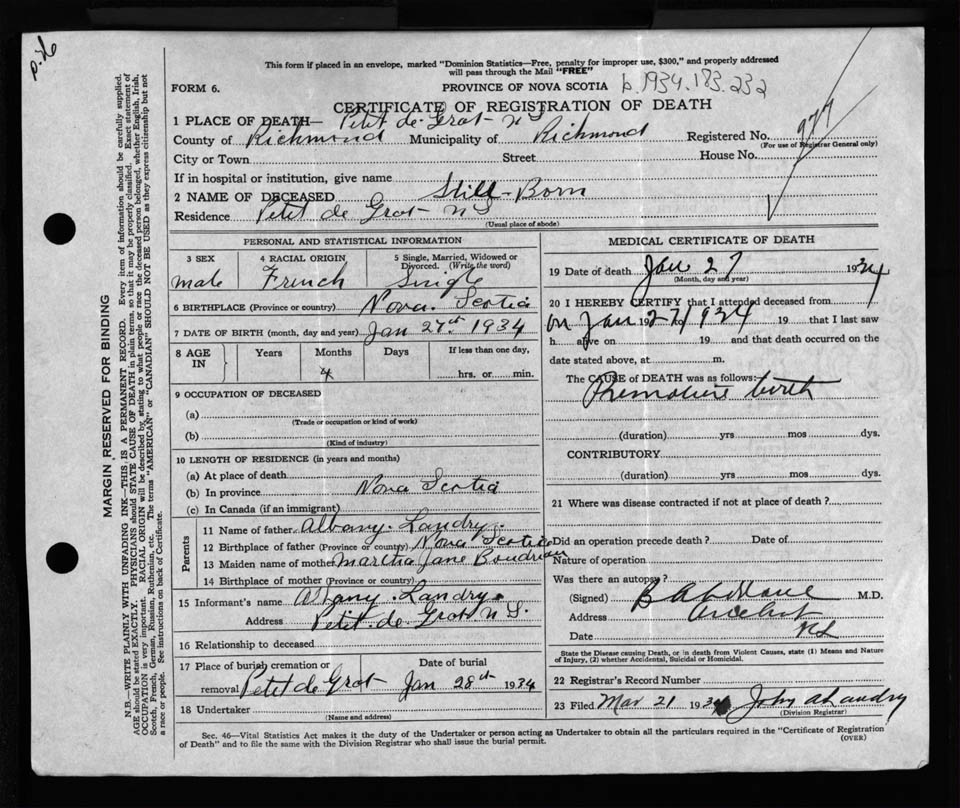 p.d6
This form if placed in an envelope, marked "Dominion Statistics—Free, penalty for improper use, $300," and properly addressed
will pass through the Mail "FREE"
FORM 6.
PROVINCE OF NOVA SCOTIA b.1934.183.232
CERTIFICATE OF REGISTRATION OF DEATH
1 PLACE OF DEATH— Petit de Grat N S
County of Richmond Municipality of Richmond Registered No. 977
(For use of Registrar General only)
City or Town Street House No.
If in hospital or institution, give name
2 NAME OF DECEASED Still-Born
Residence Petit de Grat N S
(Usual place of abode)
PERSONAL AND STATISTICAL INFORMATION
3 SEX 4 RACIAL ORIGIN 5 Single, Married, Widowed or
Divorced. (Write the word)
male French Single
6 BIRTHPLACE (Province or country) Nova Scotia
7 DATE OF BIRTH (month, day and year) Jan 27th 1934
8 AGE IN Years Months Days If less than one day,
4 hrs. or min.
9 OCCUPATION OF DECEASED
(a)
(Trade or occupation or kind of work)
(b)
(Kind of industry)
10 LENGTH OF RESIDENCE (in years and months)
(a) At place of death
(b) In province Nova Scotia
(c) In Canada (if an immigrant)
Parents
11 Name of father Albany Landry
12 Birthplace of father (Province or country) Nova Scotia
13 Maiden name of mother Martha Jane Boudreau
14 Birthplace of mother (Province or country)
15 Informant's name Albany Landry
Address Petit de Grat N S.
16 Relationship to deceased
17 Place of burial, cremation or Date of burial
removal Petit de Grat Jan 28th 1934
18 Undertaker
(Name and address)
MEDICAL CERTIFICATE OF DEATH
19 Date of death Jan 27 1934
(Month, day and year)
20 I HEREBY CERTIFY that I attended deceased from
on Jan 27/1934 19 to 19 that I last saw
h alive on 19 and that death occurred on the
date stated above, at m.
The CAUSE of DEATH was as follows:
Premature birth
(duration) yrs mos dys.
CONTRIBUTORY
(duration) yrs mos dys.
21 Where was disease contracted if not at place of death?
Did an operation precede death? Date of
Nature of operation
Was there an autopsy?
(Signed) M.D.
Address Arichat
Date N S
State the Disease causing Death, or in death from Violent Causes, state (1) Means and Nature
of Injury, (2) whether Accidental, Suicidal or Homicidal.
22 Registrar's Record Number
23 Filed Mar 21 1934 John Landry
(Division Registrar)
Sec. 46—Vital Statistics Act makes it the duty of the Undertaker or person acting as Undertaker to obtain all the particulars required in the "Certificate of Registration
of Death" and to file the same with the Division Registrar who shall issue the burial permit.
(OVER)
MARGIN RESERVED FOR BINDING
N.B.—WRITE PLAINLY WITH UNFADING INK—THIS IS A PERMANENT RECORD. Every item of information should be carefully supplied.
AGE should be stated EXACTLY. PHYSICIANS should STATE CAUSE OF DEATH in plain terms so that it may be properly classified. Exact statement of
OCCUPATION is very important. RACIAL ORIGIN will be described by stating to what people or race the deceased person belonged, whether English, Irish,
Scotch, French, German, Russian, Ruthenian, etc. The terms "AMERICAN" or "CANADIAN" SHOULD NOT BE USED as they express citizenship but not
a race or people. See instructions on back of Certificate.